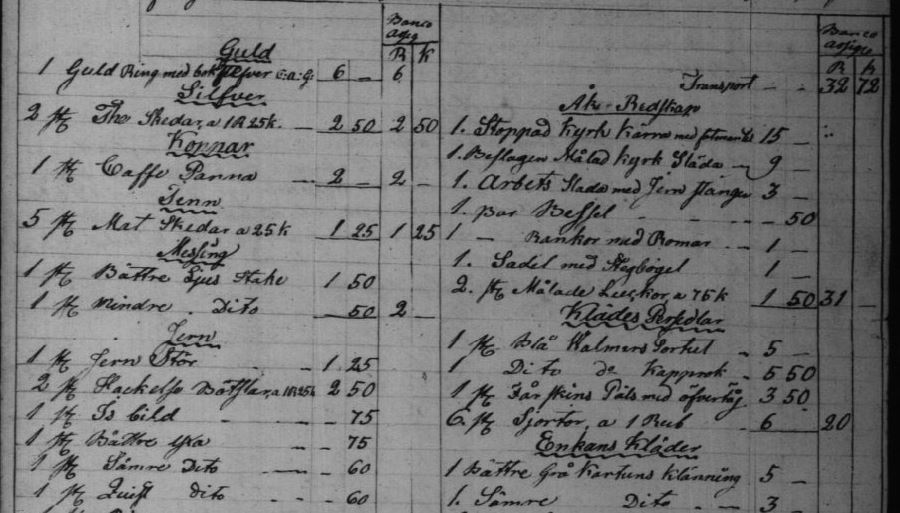 Banco
Assig
R K
Guld
1 Guld Ring med bak Silfver C:a: G: 6 — 6
Silfver
2 st Thé Skedar, a 1 R 25 k. — 2 50 2 50
Koppar
1 st Caffe Panna — 2 — 2 —
Tenn
5 st Mat Skedar a 25 k 1 25 1 25
Messing
1 st Bättre Ljus Stake 1 50
1 st mindre Dito 50 2 —
Jern
1 st Jern Stör - 1 25
2 st Hackelse a 1 R 25 k 2 50
1 st Is bild - - 75
1 st Bättre yxa - 75
1 st Sämre Dito — - 60
1 st Dito - - 60
Banco
Assign
R K
Transport - - 32 72
Åk-Redskap
1. Stoppad Kyrk Kärra med 15 —
1. Beslagen Målad Kyrk Släda — 9 —
1. Arbets Slada med Jern stänger 3 —
1. Par - - - 50
1 — Rankor med Bomar — 1 —
1. Sadel med Stegbögel 1 —
2. st Målade a 75 k 1 50 31 —
Klädes Persedlar
1 st Blå Kalmers - 5 —
1 Dito do Kapprok - 5 50
1 st Fårskins Päls med öfvertåg 3 50
6. st Sjortor, a 1 Rub - 6 — 20
Enkans Kläder
1 Bättre Grå Kartuns Klänning 5 —
1. Sämre Dito - - 3